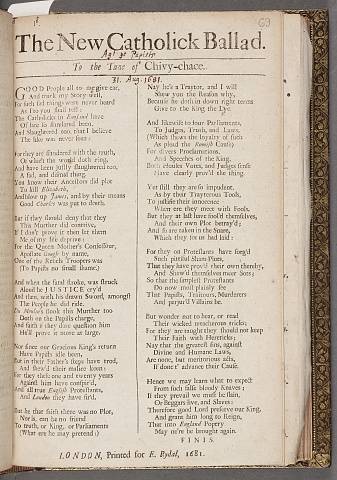 63
The New Catholick Ballad.
Agt ye Papists
To the Tune of Chivy-chace.
31. Aug. 1681.
GOOD People all to me give ear,
And mark my Story well,
For such sad things were never heard
As I to you shall tell:
The Catholicks in England have
Of late so slandered been,
And Slaughtered too, that I believe
The like was never seen:
For they are slandered with the truth,
Or which the people think true,
And have been justly slaughtered too,
A sad, and dismal thing.
You know their Ancestors did plot
To kill Elizabeth,
And blow up James, and by their means
Good Charles was put to death.
But if they should deny that they
This Murther did contrive,
If I don't prove it then let them
Me of my life deprive:
For the Queen Mother's Confessour,
Apostate Gough by name,
One of the Rebels Troopers was
(To Papists no small shame.)
And when the fatal stroke was struck
Aloud he JUSTICE cry'd
And then, with his drawn Sword, amongst
The People he did ride.
Du Moulin's Book this Murther too
Doth on the Papists charge,
And faith if they dare question him
He'll prove it more at large.
Nor since our Gracious King's return
Have Papists idle been,
But in their Father's steps have trod,
And shew'd their malice keen:
For they these one and twenty years
Against him have conspir'd,
And all true English Protestants,
And London they have fir'd.
But he that saith there was no Plot,
Nor is, can be no friend
To truth, or King, or Parliaments
(What ere he may pretend:)
Nay he's a Traytor, and I will
Shew you the Reason why,
Because he doth in down right terms
Give to the King the Lye.
And likewise to four Parliaments,
To Judges, Truth, and Laws,
(Which shows the loyalty of such
As plead the Romish Cause)
For divers Proclamations,
And Speeches of the King,
Both Houses Votes, and Judges sense
Have clearly prov'd the thing.
Yet still they are so impudent,
As by their Trayterous Tools,
To justifie their innocence
When ere they meet with Fools.
But they at last have fool'd themselves,
And their own Plot betray'd;
And so are taken in the Snare,
Which they for us had laid:
For they on Protestants have forg'd
Such pittiful Sham-Plots,
That they have prov'd their own thereby,
And Shew'd themselves meer Sots;
So that the simplest Protestants
Do now most plainly see
That Papists, Traitours, Murderers
And perjur'd Villains be.
But wonder not to hear, or read
Their wicked treacherous tricks;
For they are taught they should not keep
Their Faith with Hereticks;
Nay that the greatest sins, against
Divine and Humane Laws,
Are none, but meritorious acts,
If done t' advance their Cause.
Hence we may learn what to expect
From such false bloody Knaves;
If they prevail we must be slain,
Or Beggars live, and Slaves:
Therefore good Lord preserve our King,
And grant him long to Reign,
That into England Popery
May ne're be brought again.
FINIS.
LONDON, Printed for E. Rydal, 1681.